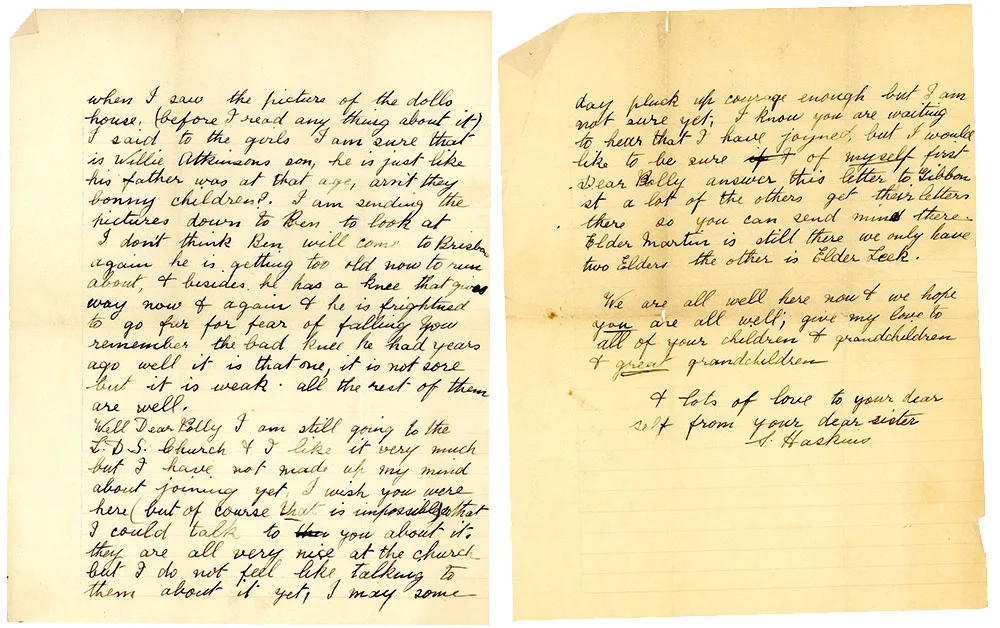 when I saw the picture of the dolls
house, (before I read any thing about it)
I said to the girls I am sure that
is Willie Atkinsons son, he is just like
his father was at that age, arn't they
bonny children?. I am sending the
pictures down to Ben to look at
I don't think Ben will come to Brisbn
again he is getting too old now to run
about, & besides he has a knee that gives
way now & again & he is frightned
to go far for fear of falling You
remember the bad knee he had years
ago well it is that one, it is not sore
but it is weak. all the rest of them
are well.
Well Dear Polly I am still going to the
L.D.S. Church & I like it very much
but I have not made up my mind
about joining yet, I wish you were
here (but of course that is impossible) so that
I could talk to you about it.
they are all very nice at the church
but I do not feel like talking to
them about it yet, I may some
day pluck up courage enough but I am
not sure yet; I know you are waiting
to hear that I have joyned, but I would
like to be sure if I of myself first
Dear Polly answer this letter to Gibbon
st a lot of the others get their letters
there so you can send mind there.
Elder Martin is still there we only have
two Elders the other is Elder Leek.
We are all well here now & we hope
you are all well; give my love to
all of your children & grandchildren
& great grandchildren
& lots of love to your dear
self from your dear sister
S. Haskins